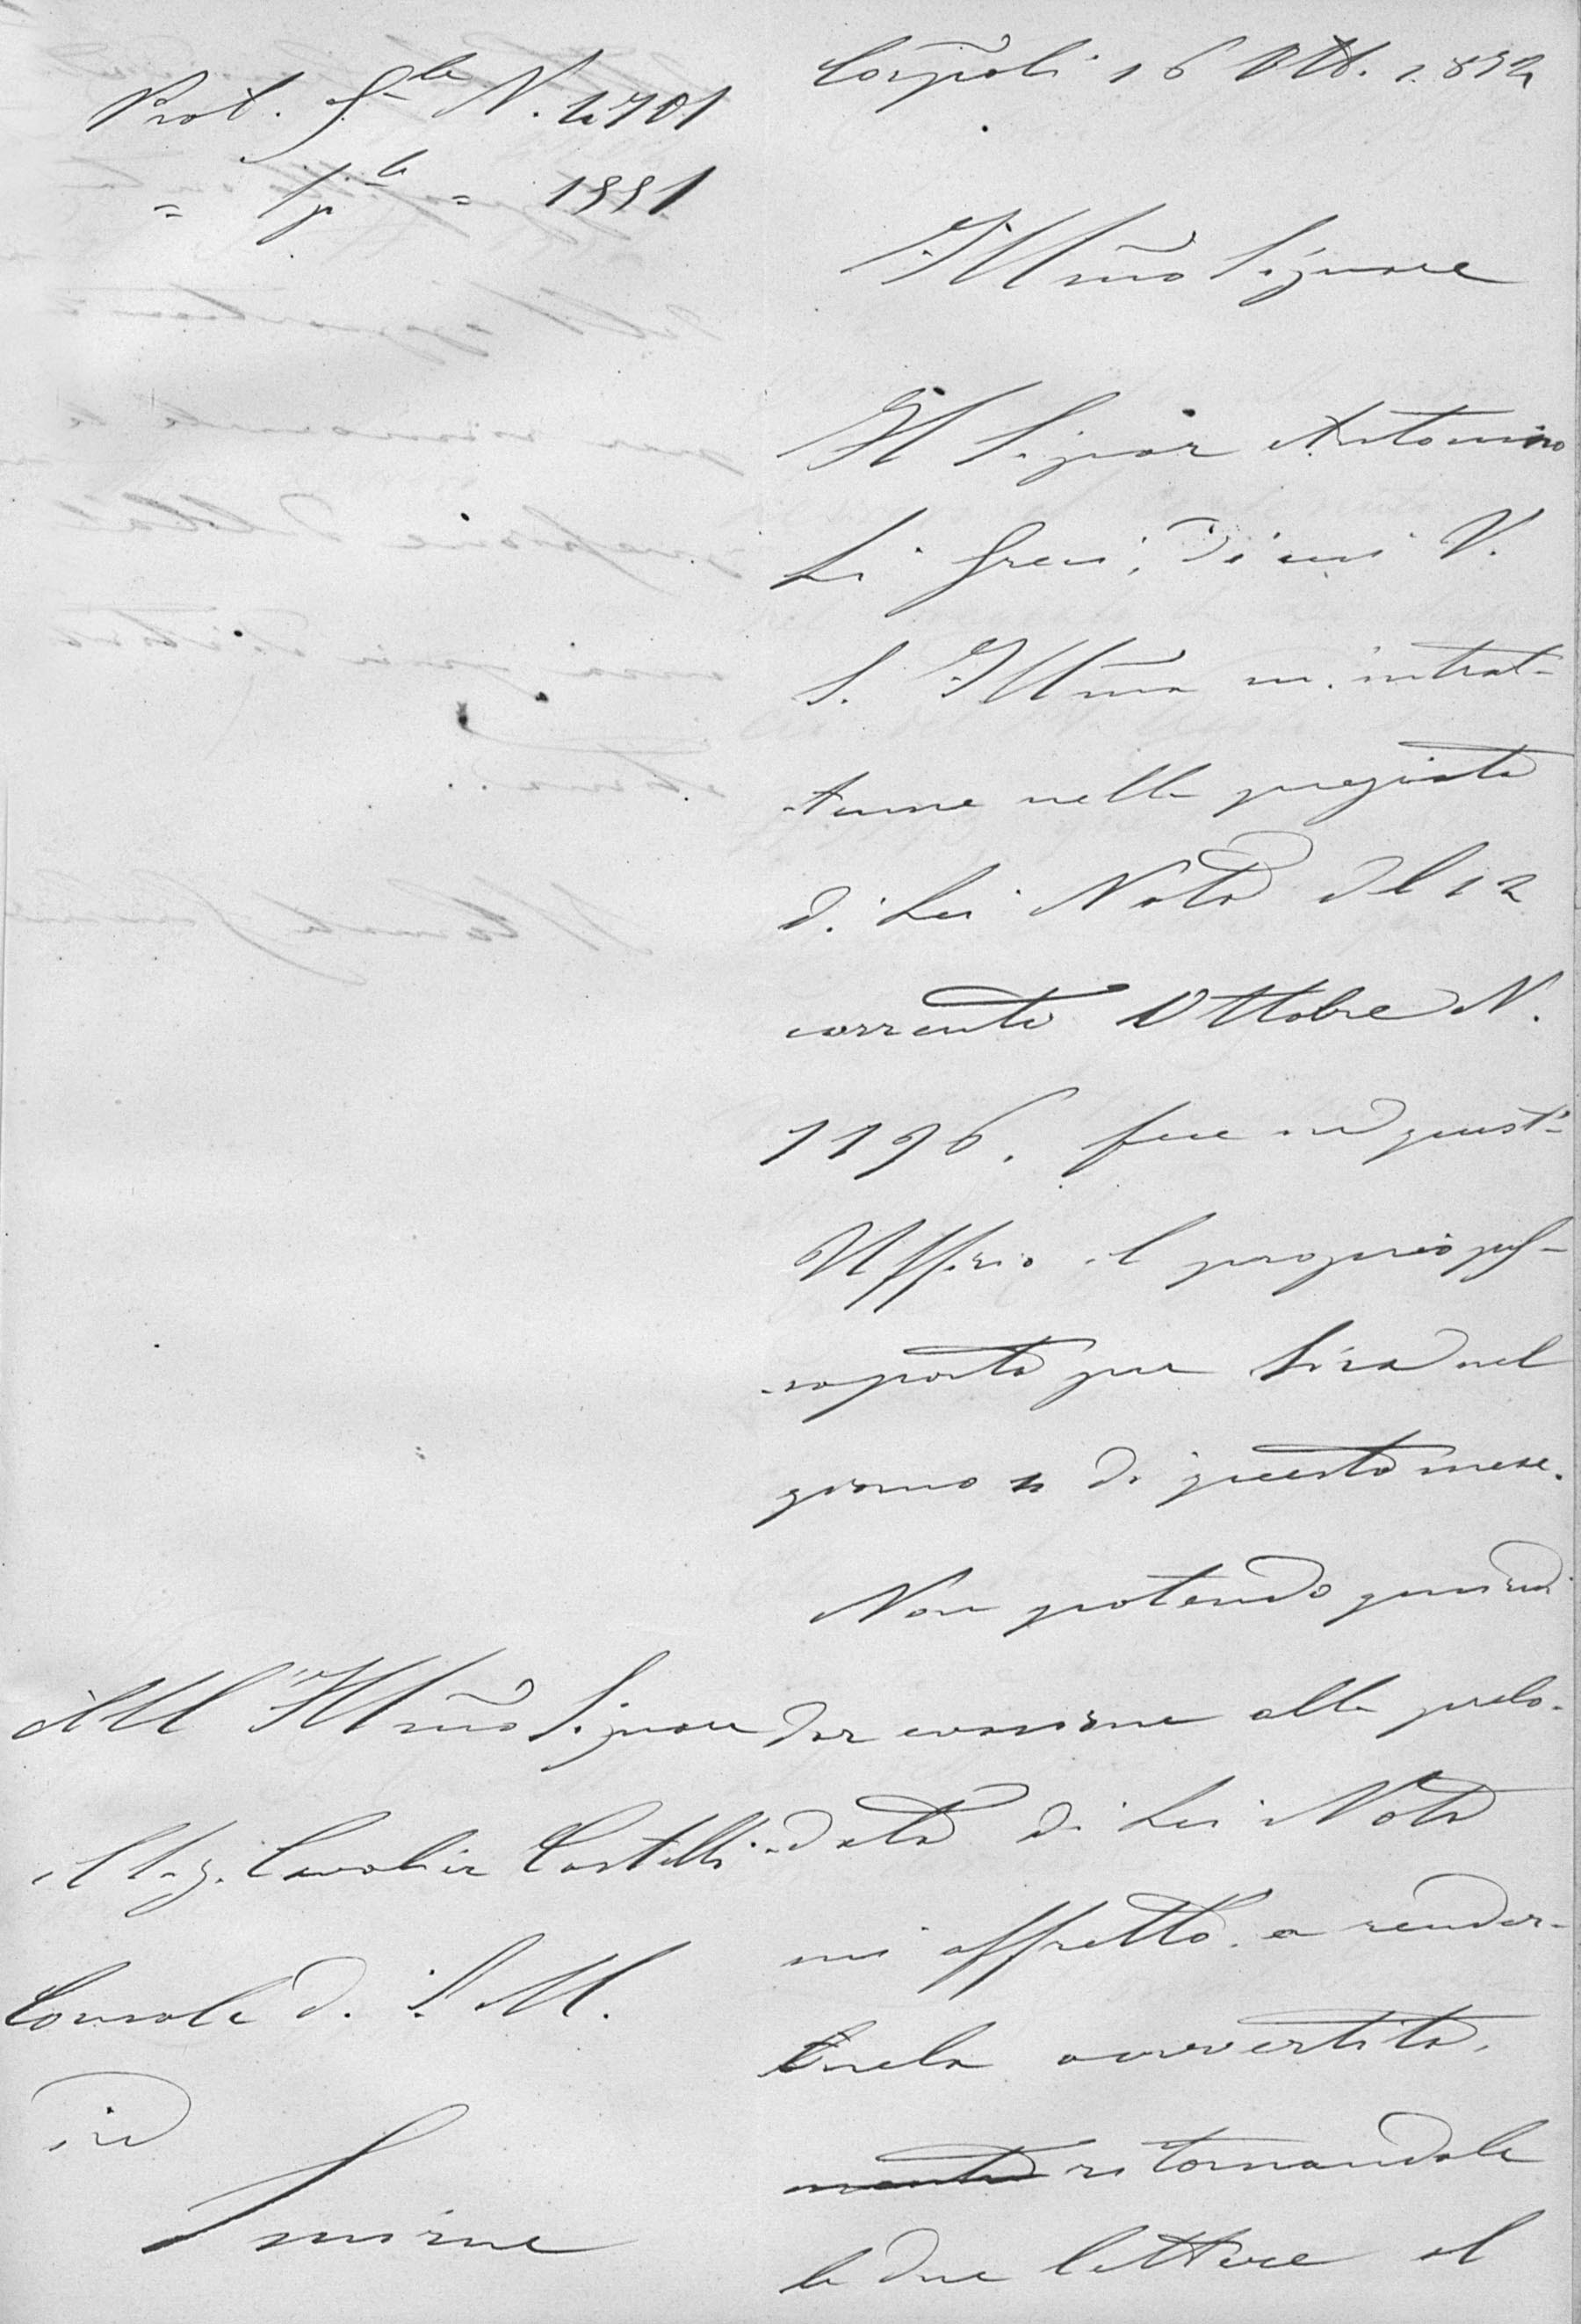 Prot. Gle N. 1701
= Sple = 1551
Cospoli 16 Ott. 1852
Illmo Signore
Il Signor Antonino
Li Greci, di cui V.
S. Illma m'intrat-
tenne nella pregiata
di Lei Nota del 12
corrente Ottobre N.
1196. fece in quest'
Uffizio il proprio pas-
saporto per Sira nel
giorno 11 di questo mese.
Non potendo quindi
dar evasione alla prelo-
data di Lei Nota
mi affretto a render-
nela avvertita,
ritornandole
le due lettere al
All'Illmo Signore
il Sig. Cavalier Castelli
Console di S. M.
in
Smirne